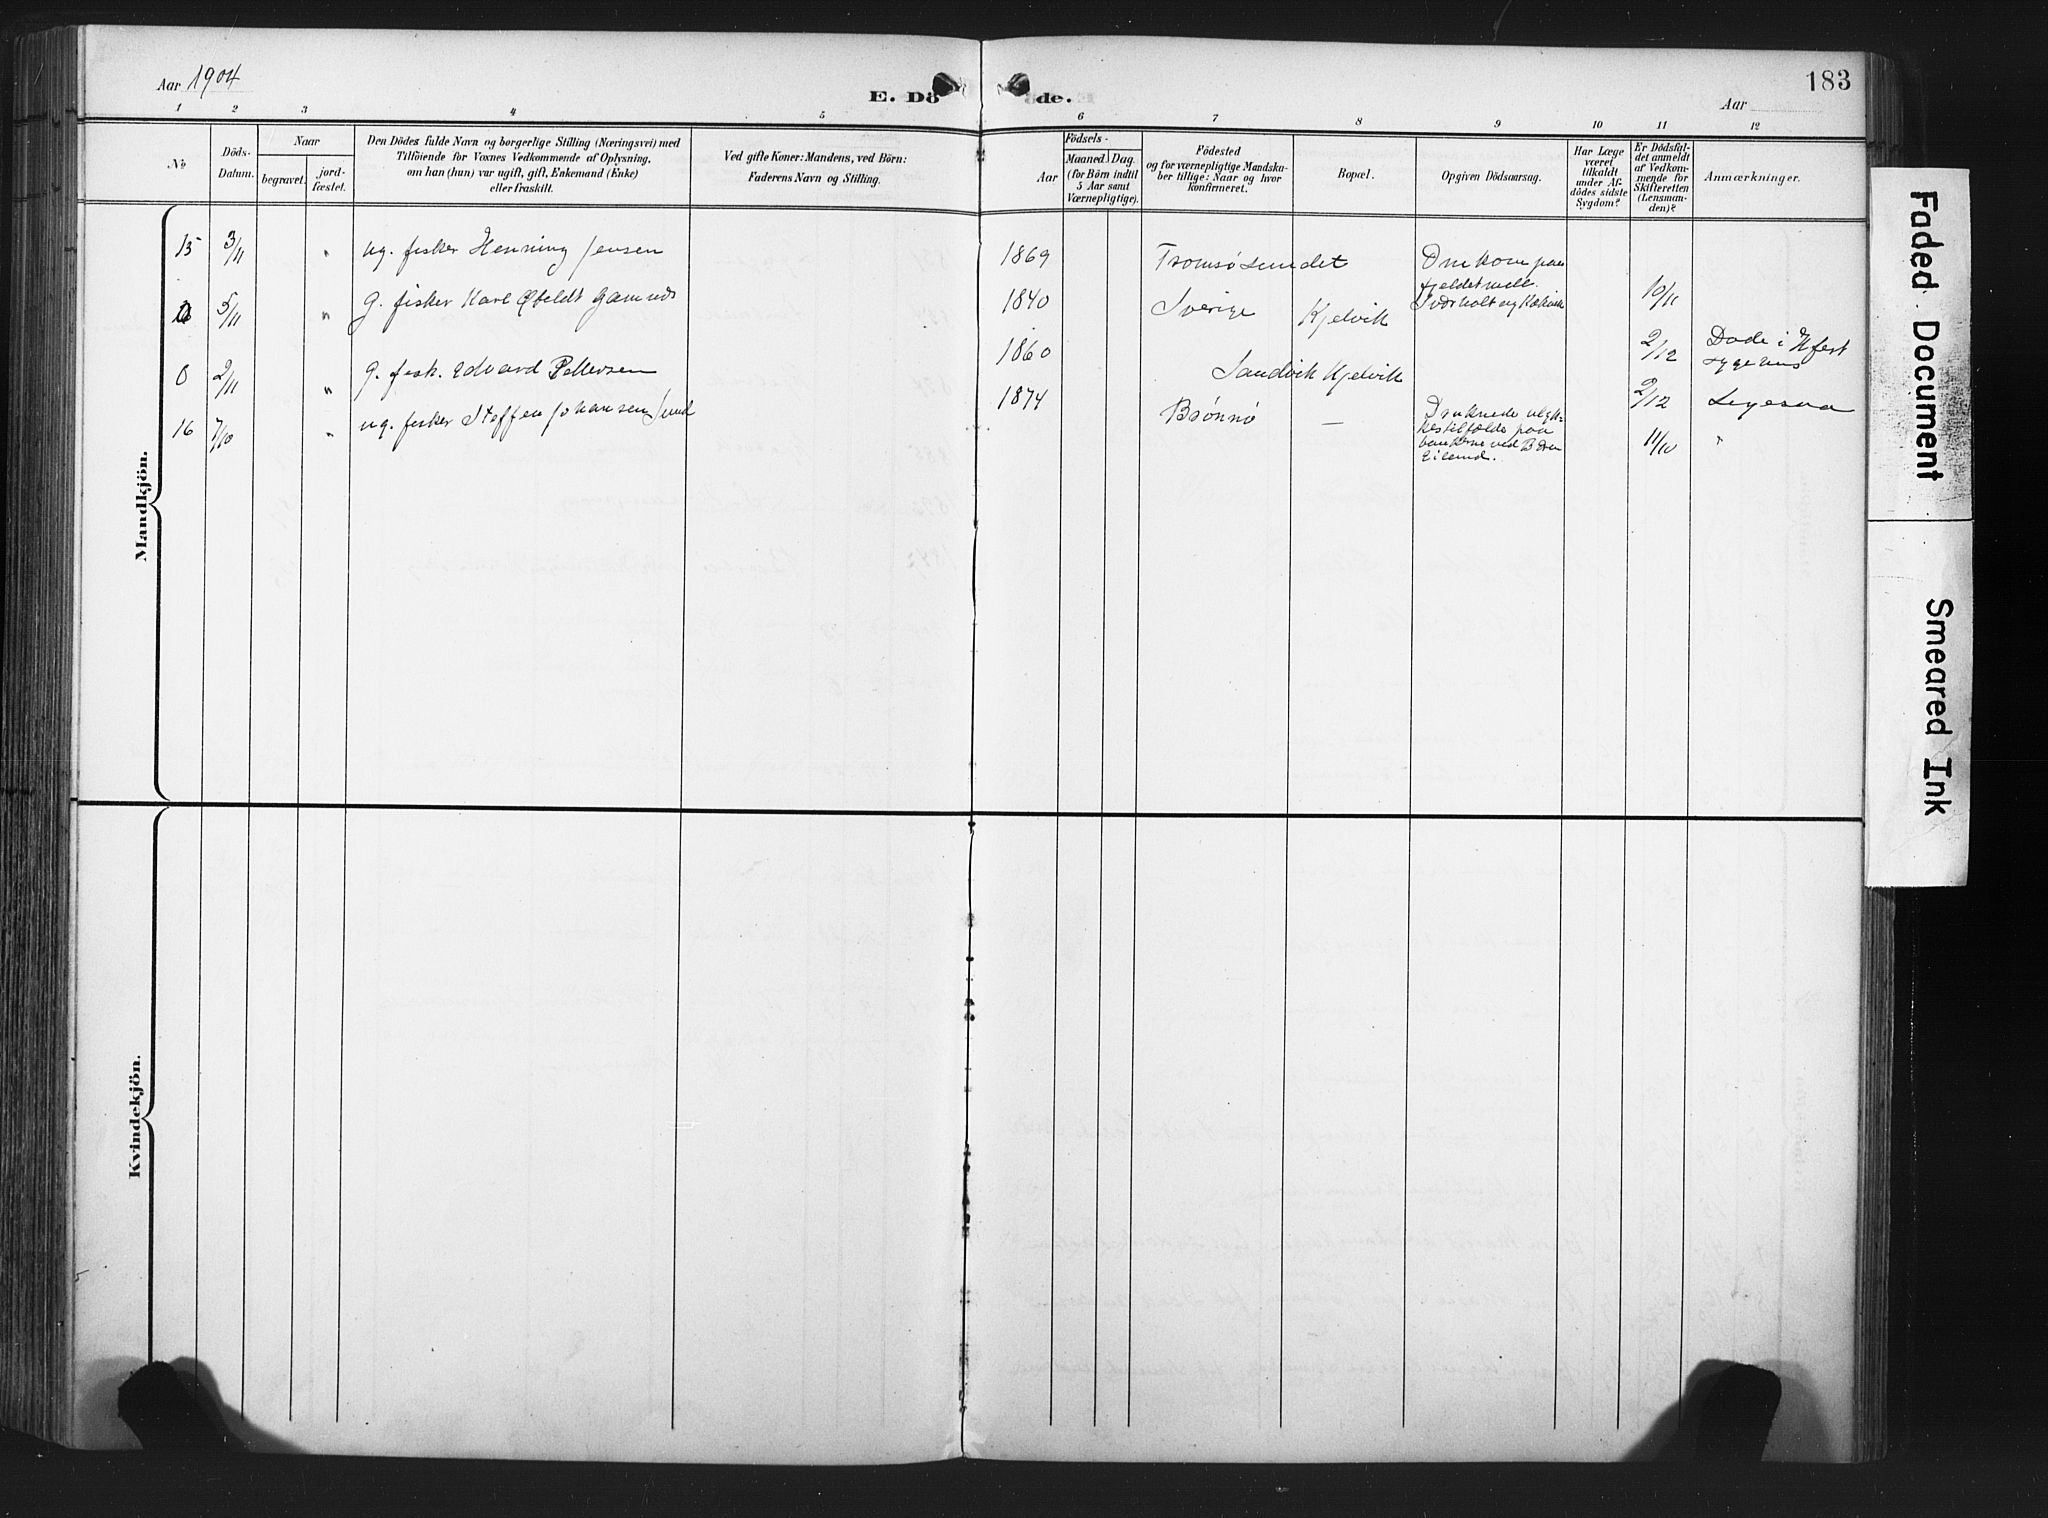 Aar 1904
E. Döde.
183
Aar
1 2 3 4 5 6 7 8 9 10 11 12
No
Döds-
Datum.
Naar
begravet.
jord-
fæstet.
Den Dödes fulde Navn og borgerlige Stilling (Næringsvei) med
Tilföiende for Voxnes Vedkommende af Oplysning,
om han (hun) var ugift, gift, Enkemand (Enke)
eller fraskilt.
Ved gifte Koner: Mandens, ved Börn:
Faderens Navn og Stilling.
Födsels-
Aar
Maaned. Dag.
(for Börn indtil
5 Aar samt
Værnepligtige).
Födested
og for værnepligtige Mandska-
ber tillige: Naar og hvor
konfirmeret.
Bopæl.
Opgiven Dödsaarsag.
Har Læge
været
tilkaldt
under Af-
dödes sidste
Sygdom?
Er Dödsfal-
det anmeldt
af Vedkom-
mende for
Skifteretten
(Lensman-
den)?
Anmærkninger.
Mandkjön.
15 3/11 " ug. fisker Henning Jensen 1869 Tromsøsundet Omkom paa
fjeldet mell.
5/11 " G. fisker Karl 1840 Sverige Kjelvik 10/11
0 2/11 " G. fisk. Edvard Pettersen 1860 Sandvik Kjelvik 2/12 Døde i Hfest
sygehus
16 7/10 " ug. fisker Steffen Johansen 1874 Brønnø — Druknede ulyk-
kestilfælde paa
bankerne ved
2/12
11/10 "
Kvindekjön.
Faded Document
Smeared Ink